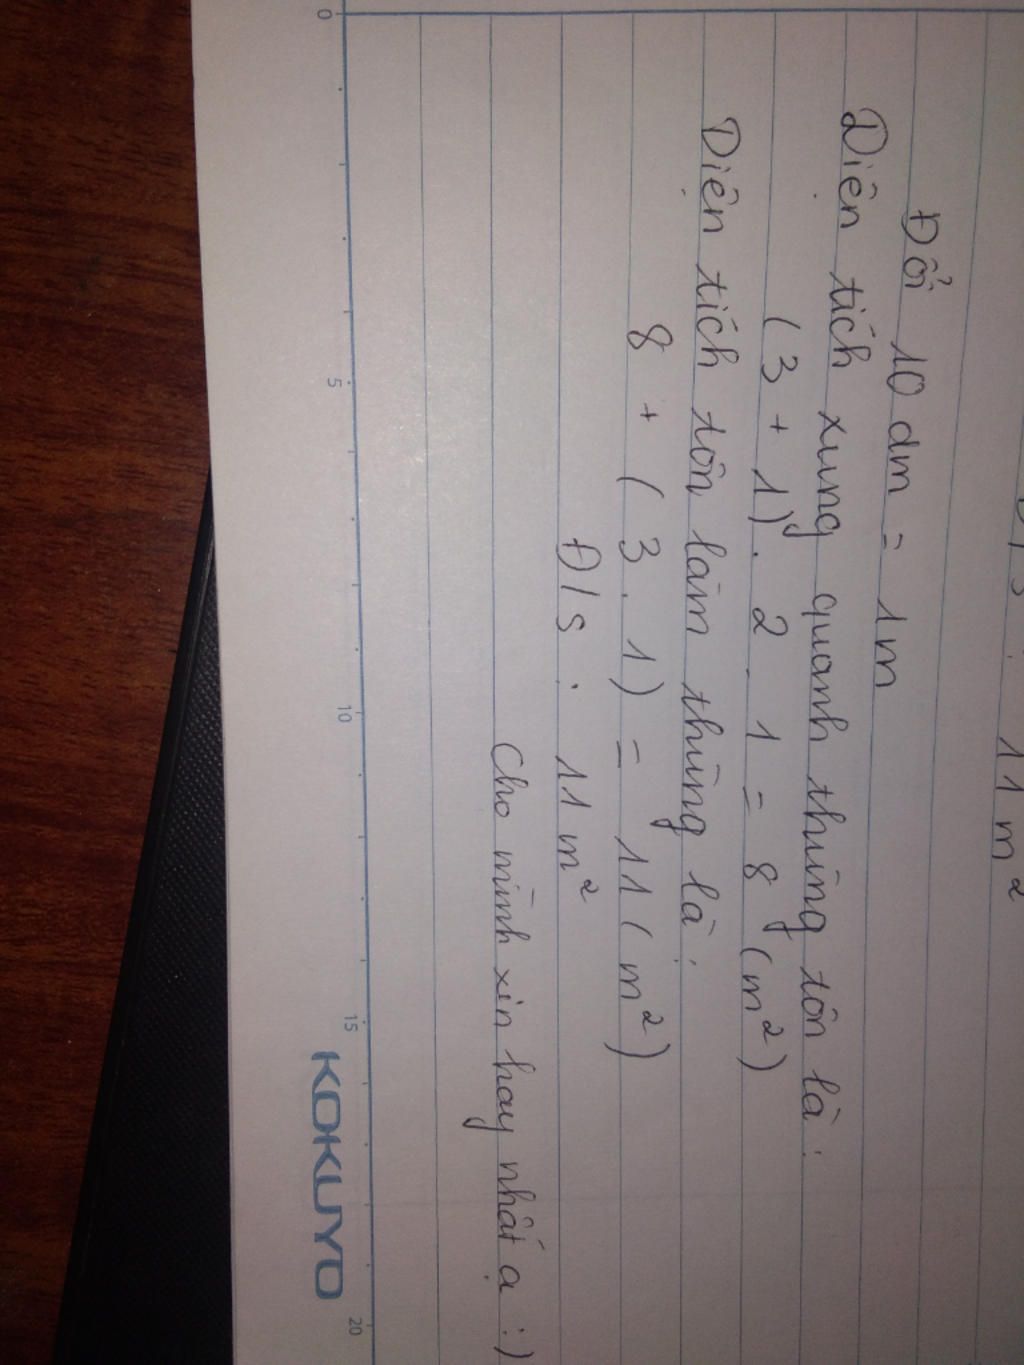 11 m²
Đổi 10 dm = 1 m
Diện tích xung quanh thùng tôn là :
( 3 + 1 ) . 2 . 1 = 8 ( m² )
Diện tích tôn làm thùng là :
8 + ( 3 . 1 ) = 11 ( m² )
Đ/s . 11 m²
Cho mình xin hay nhất ạ :)
0 5 10 15 20
KOKUYO